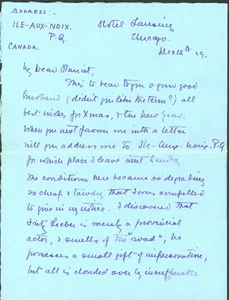 ADDRESS:-
ILE-AUX-NOIX.
P.Q.
CANADA.
Hotel Lansing
Chicago.
Dec 12th 19.
My dear Daniel,
This to bear to you a good
(didn't you like the term?) all
best wishes for Xmas, & the New Year.
When you next favour me with a letter
will you address me to Ile-Aux-Noix, P.Q
for which place I leave next Sunday.
The conditions here became so degrading
so cheap & tawdry that I was compelled
to give in my notice. I discovered that
Fritz Leiber is merely a provincial
actor, & smells of the "road", he
possesses a small gift of impersonation,
but all is clouded over by insufferable